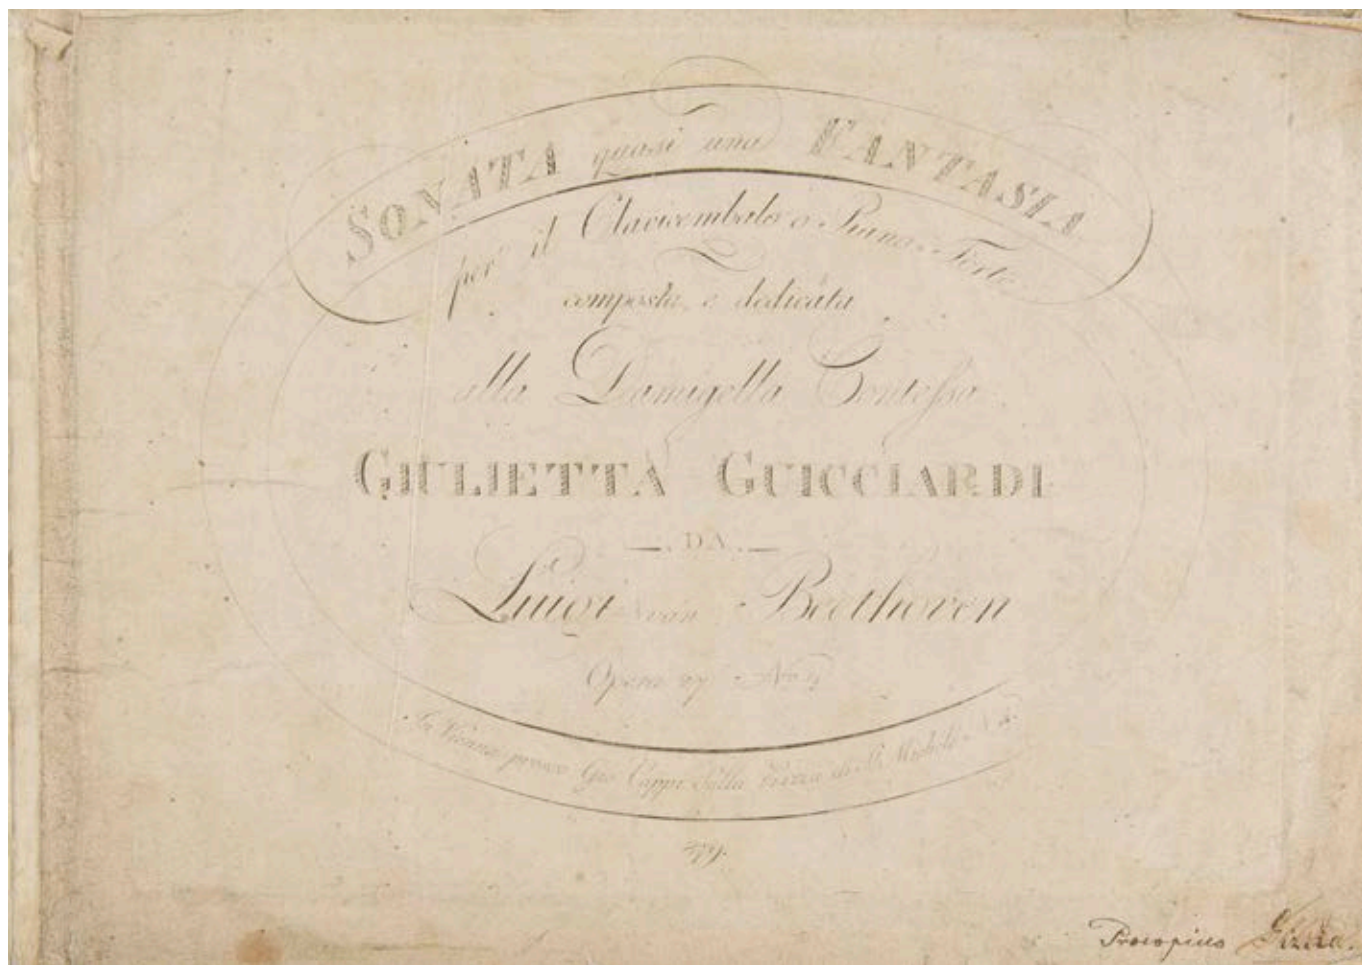 SONATA quasi una FANTASIA
per il Clavicembalo o Piano-Forte
composta, e dedicata
alla Damigella Contessa
GIULIETTA GUICCIARDI
DA
Luigi van Beethoven
Opera 27 No.
In Vienna presso Gio. Cappi Sulla Piazza di St. Michele No.
879.
Procopius